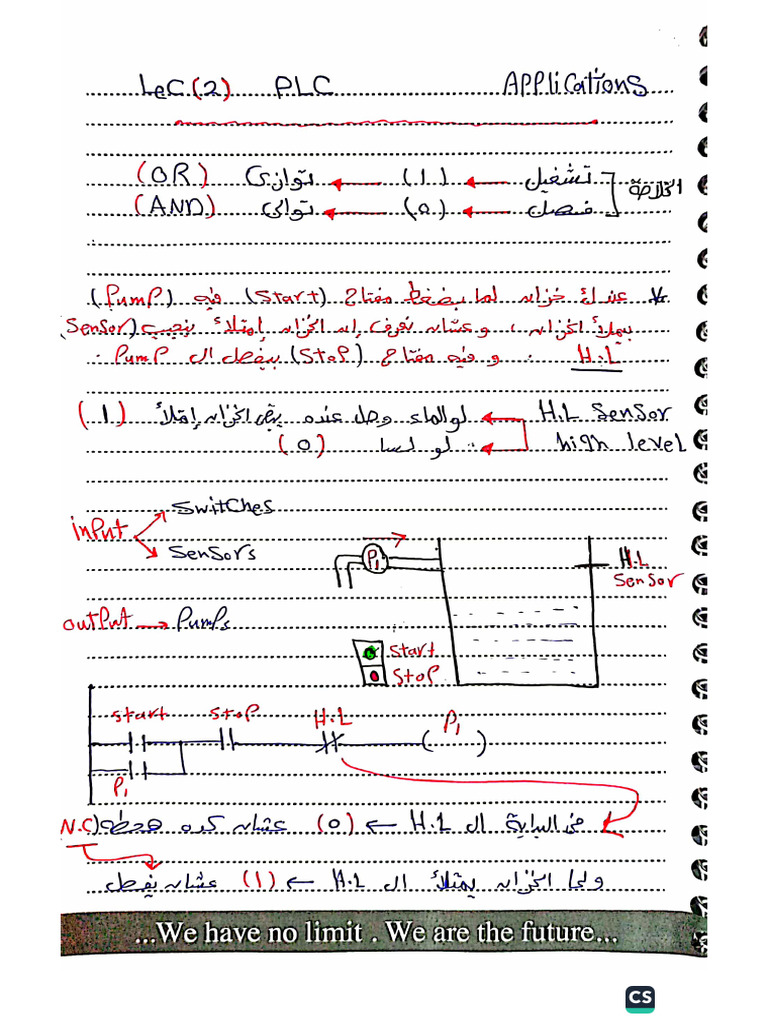 Lec (2) PLC Applications
الخلاصة
تشغيل ← (1) ← توازى (OR)
فصل ← (0) ← توالى (AND)
* عندك خزان لما بضغط مفتاح (Start) فيه (Pump)
بيملأ الخزان، وعشان نعرف إن الخزان إمتلأ بنجيب (Sensor
H.L وفيه مفتاح (Stop) بيفصل ال Pump.
H.L Sensor ← لو الماء وصل عنده يبقى الخزان إمتلأ (1)
high level ← لو لسا (0)
input
Switches
Sensors
output → Pumps
P1
H.L
Sensor
Start
Stop
Start Stop H.L P1
P1
فى البداية ال H.L ← (0) عشان كده هحطه (N.C
ولما الخزان يمتلأ ال H.L ← (1) عشان يفصل
...We have no limit . We are the future...
CS